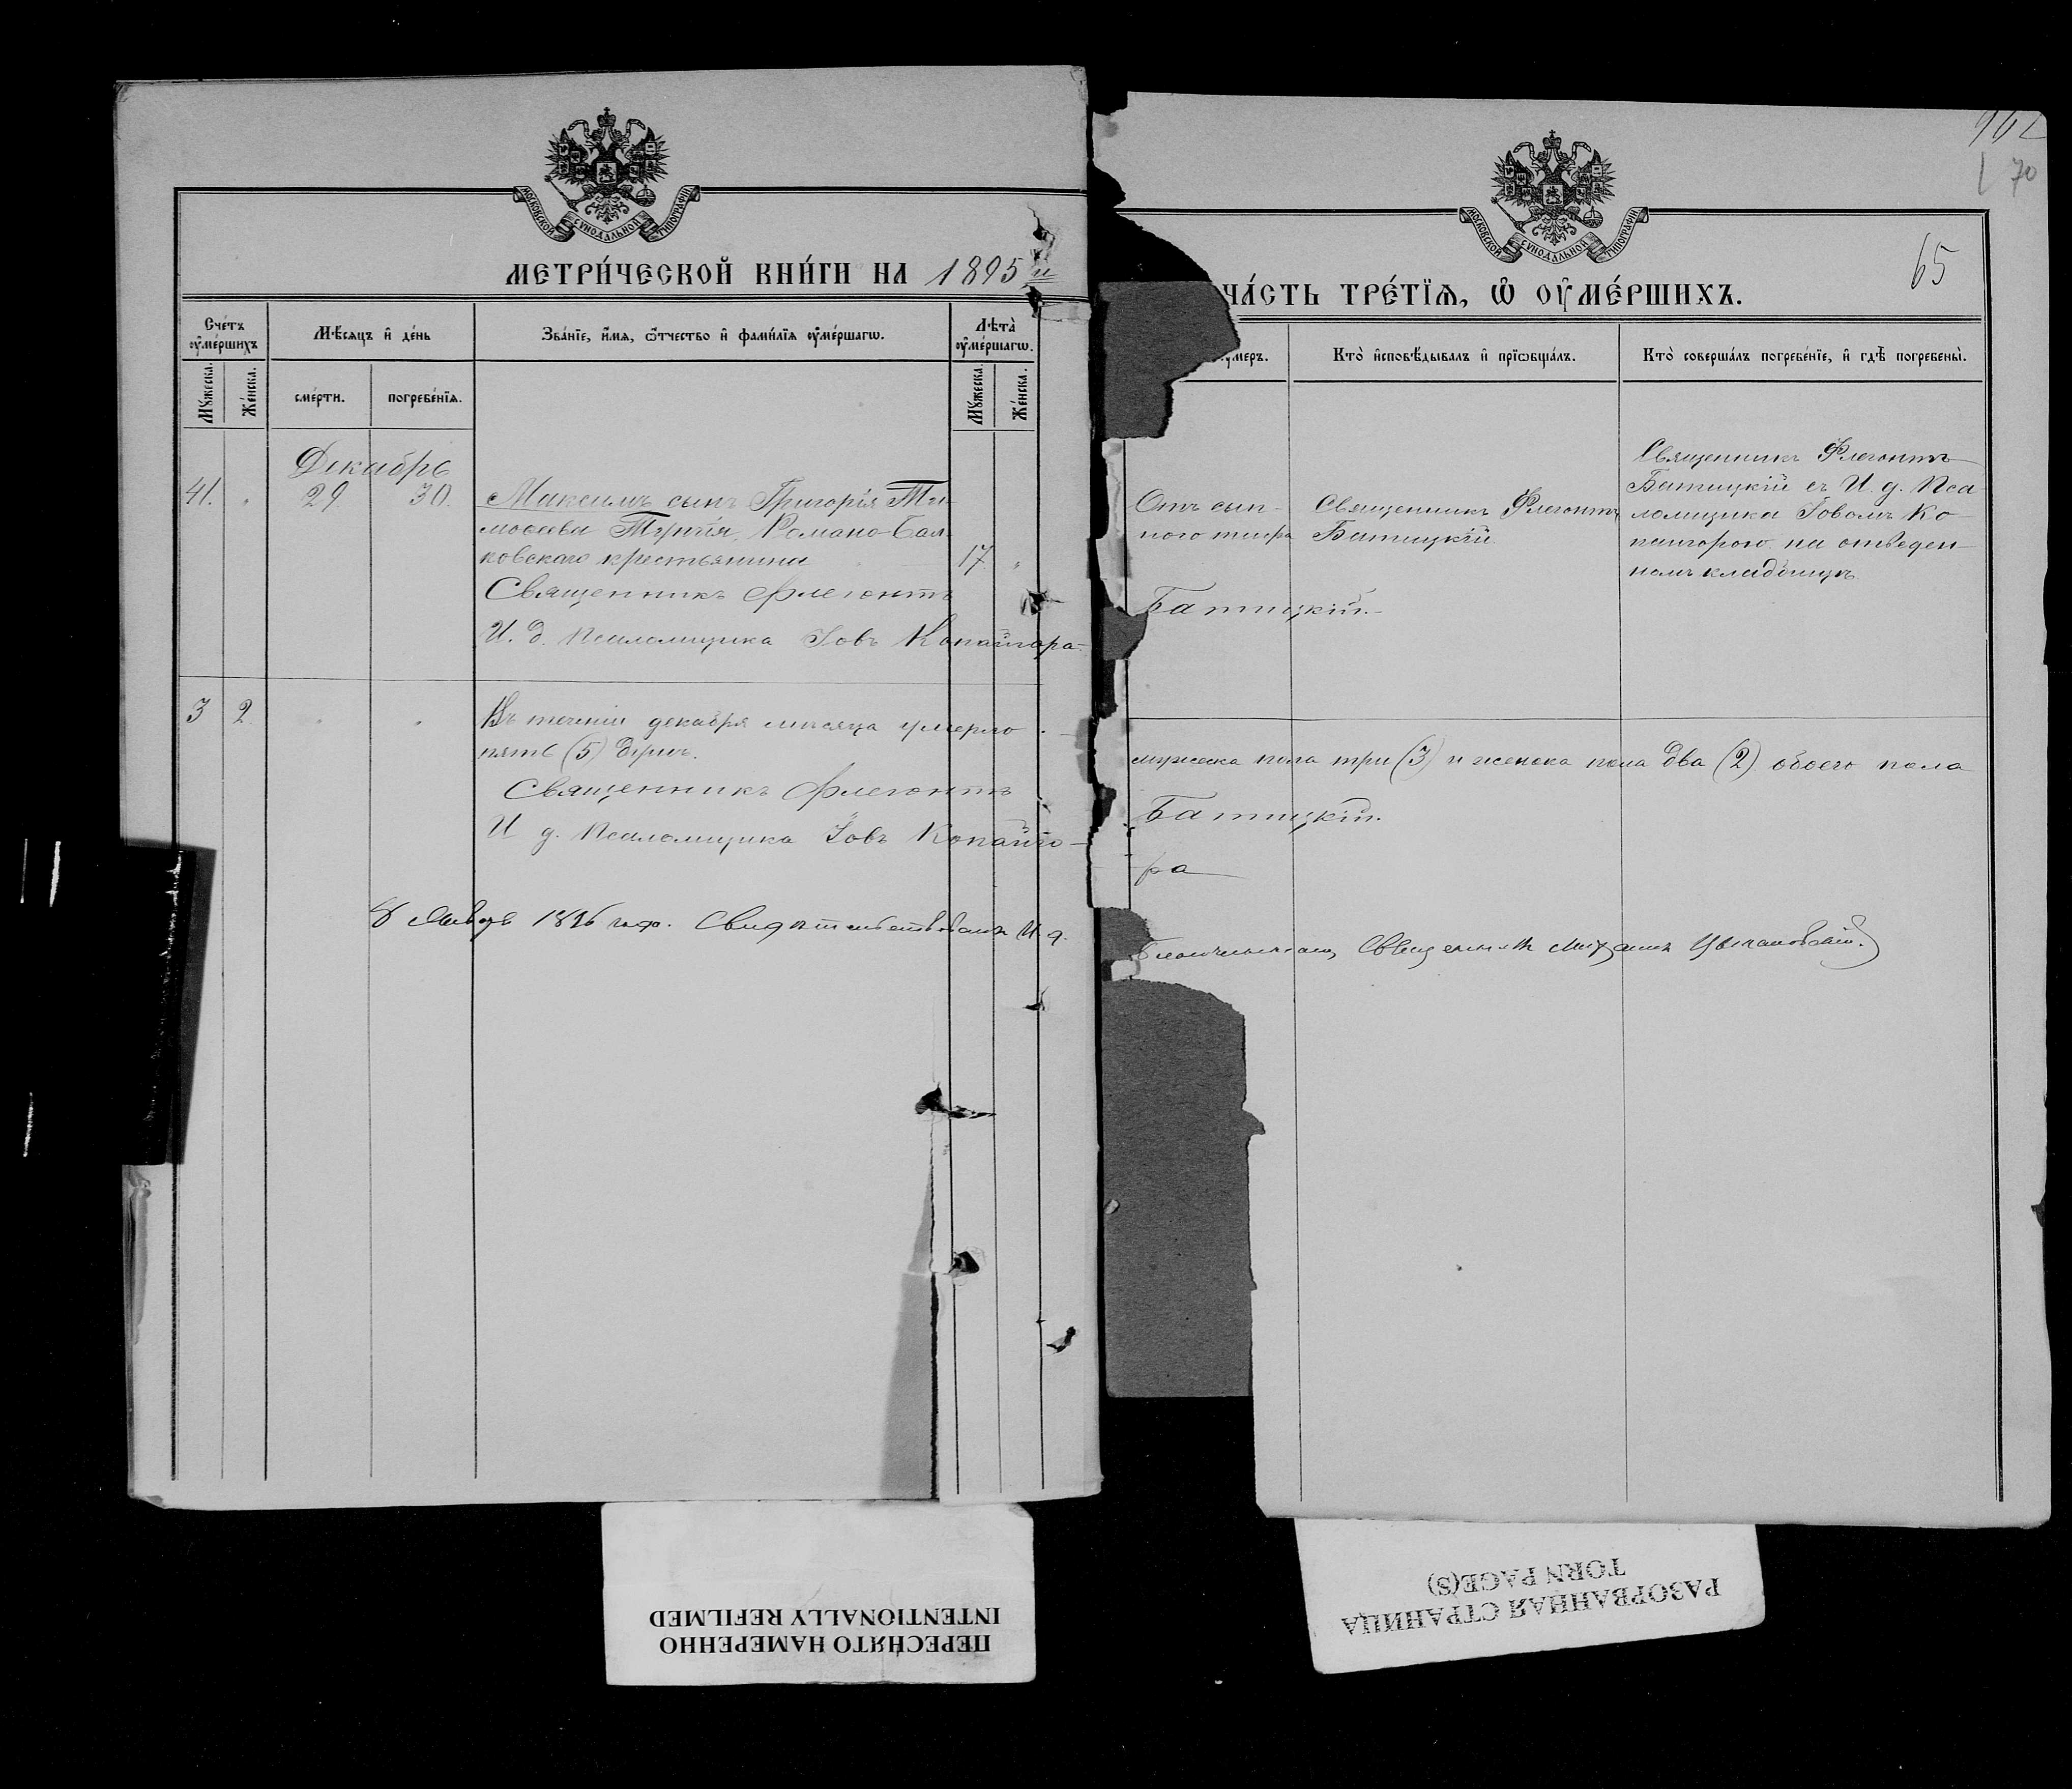 МОСКОВСКОЙ СѴНОДАЛЬНОЙ ТИПОГРАФІИ
МЕТРИ́ЧЕСКОЙ КНИ́ГИ НА 1895 й
Сче́тъ ᲂу҆ме́ршихъ
Мѣ́сяцъ и҆ де́нь
Зва́нїе, и҆́мѧ, ѻ҆́тчество и҆ фами́лїѧ ᲂу҆ме́ршагѡ.
Лѣ̀та ᲂу҆ме́ршагѡ.
Мꙋ́жеска.
Же́нска.
сме́рти.
погребе́нїѧ.
Мꙋ́жеска.
Же́нска.
Декабрь
41. 29 30. Максимъ сынъ Григорія Ти-
моѳеева Романо-Бал-
ковскаго крестьянина 17
Священникъ Флегонтъ
И. д. Псаломщика Іовъ Копайгора
3 2 Въ теченіи декабря мѣсяца умерло
пять (5) душъ.
Священникъ Флегонтъ
И д. Псаломщика Іовъ Копайго-
8 Январь 1896 года. Свидѣтельствовалъ И. д.
962
70
МОСКОВСКОЙ СѴНОДАЛЬНОЙ ТИПОГРАФІИ
65
ЧА́СТЬ ТРЕ́ТЇѦ, Ѽ ОУ҆МЕ́РШИХЪ.
ᲂу҆́меръ.
Кто̀ и҆сповѣ́дывалъ и҆ прїѡбща́лъ.
Кто̀ соверша́лъ погребе́нїе, и҆ гдѣ̀ погребены̀.
Отъ сып-
ного тифа
Священникъ Флегонтъ
Батицкій
Священникъ Флегонтъ
Батицкій съ И. д. Пса
ломщика Іовомъ Ко
пайгорою на отведен-
номъ кладбищѣ
Батицкій.
мужеска пола три (3) и женска пола два (2) обоего пола
Батицкій.
ра
Благочиннаго, Священникъ Михаилъ
ПЕРЕСНЯТО НАМЕРЕННО
INTENTIONALLY REFILMED
РАЗОРВАННАЯ СТРАНИЦА
TORN PAGE(S)